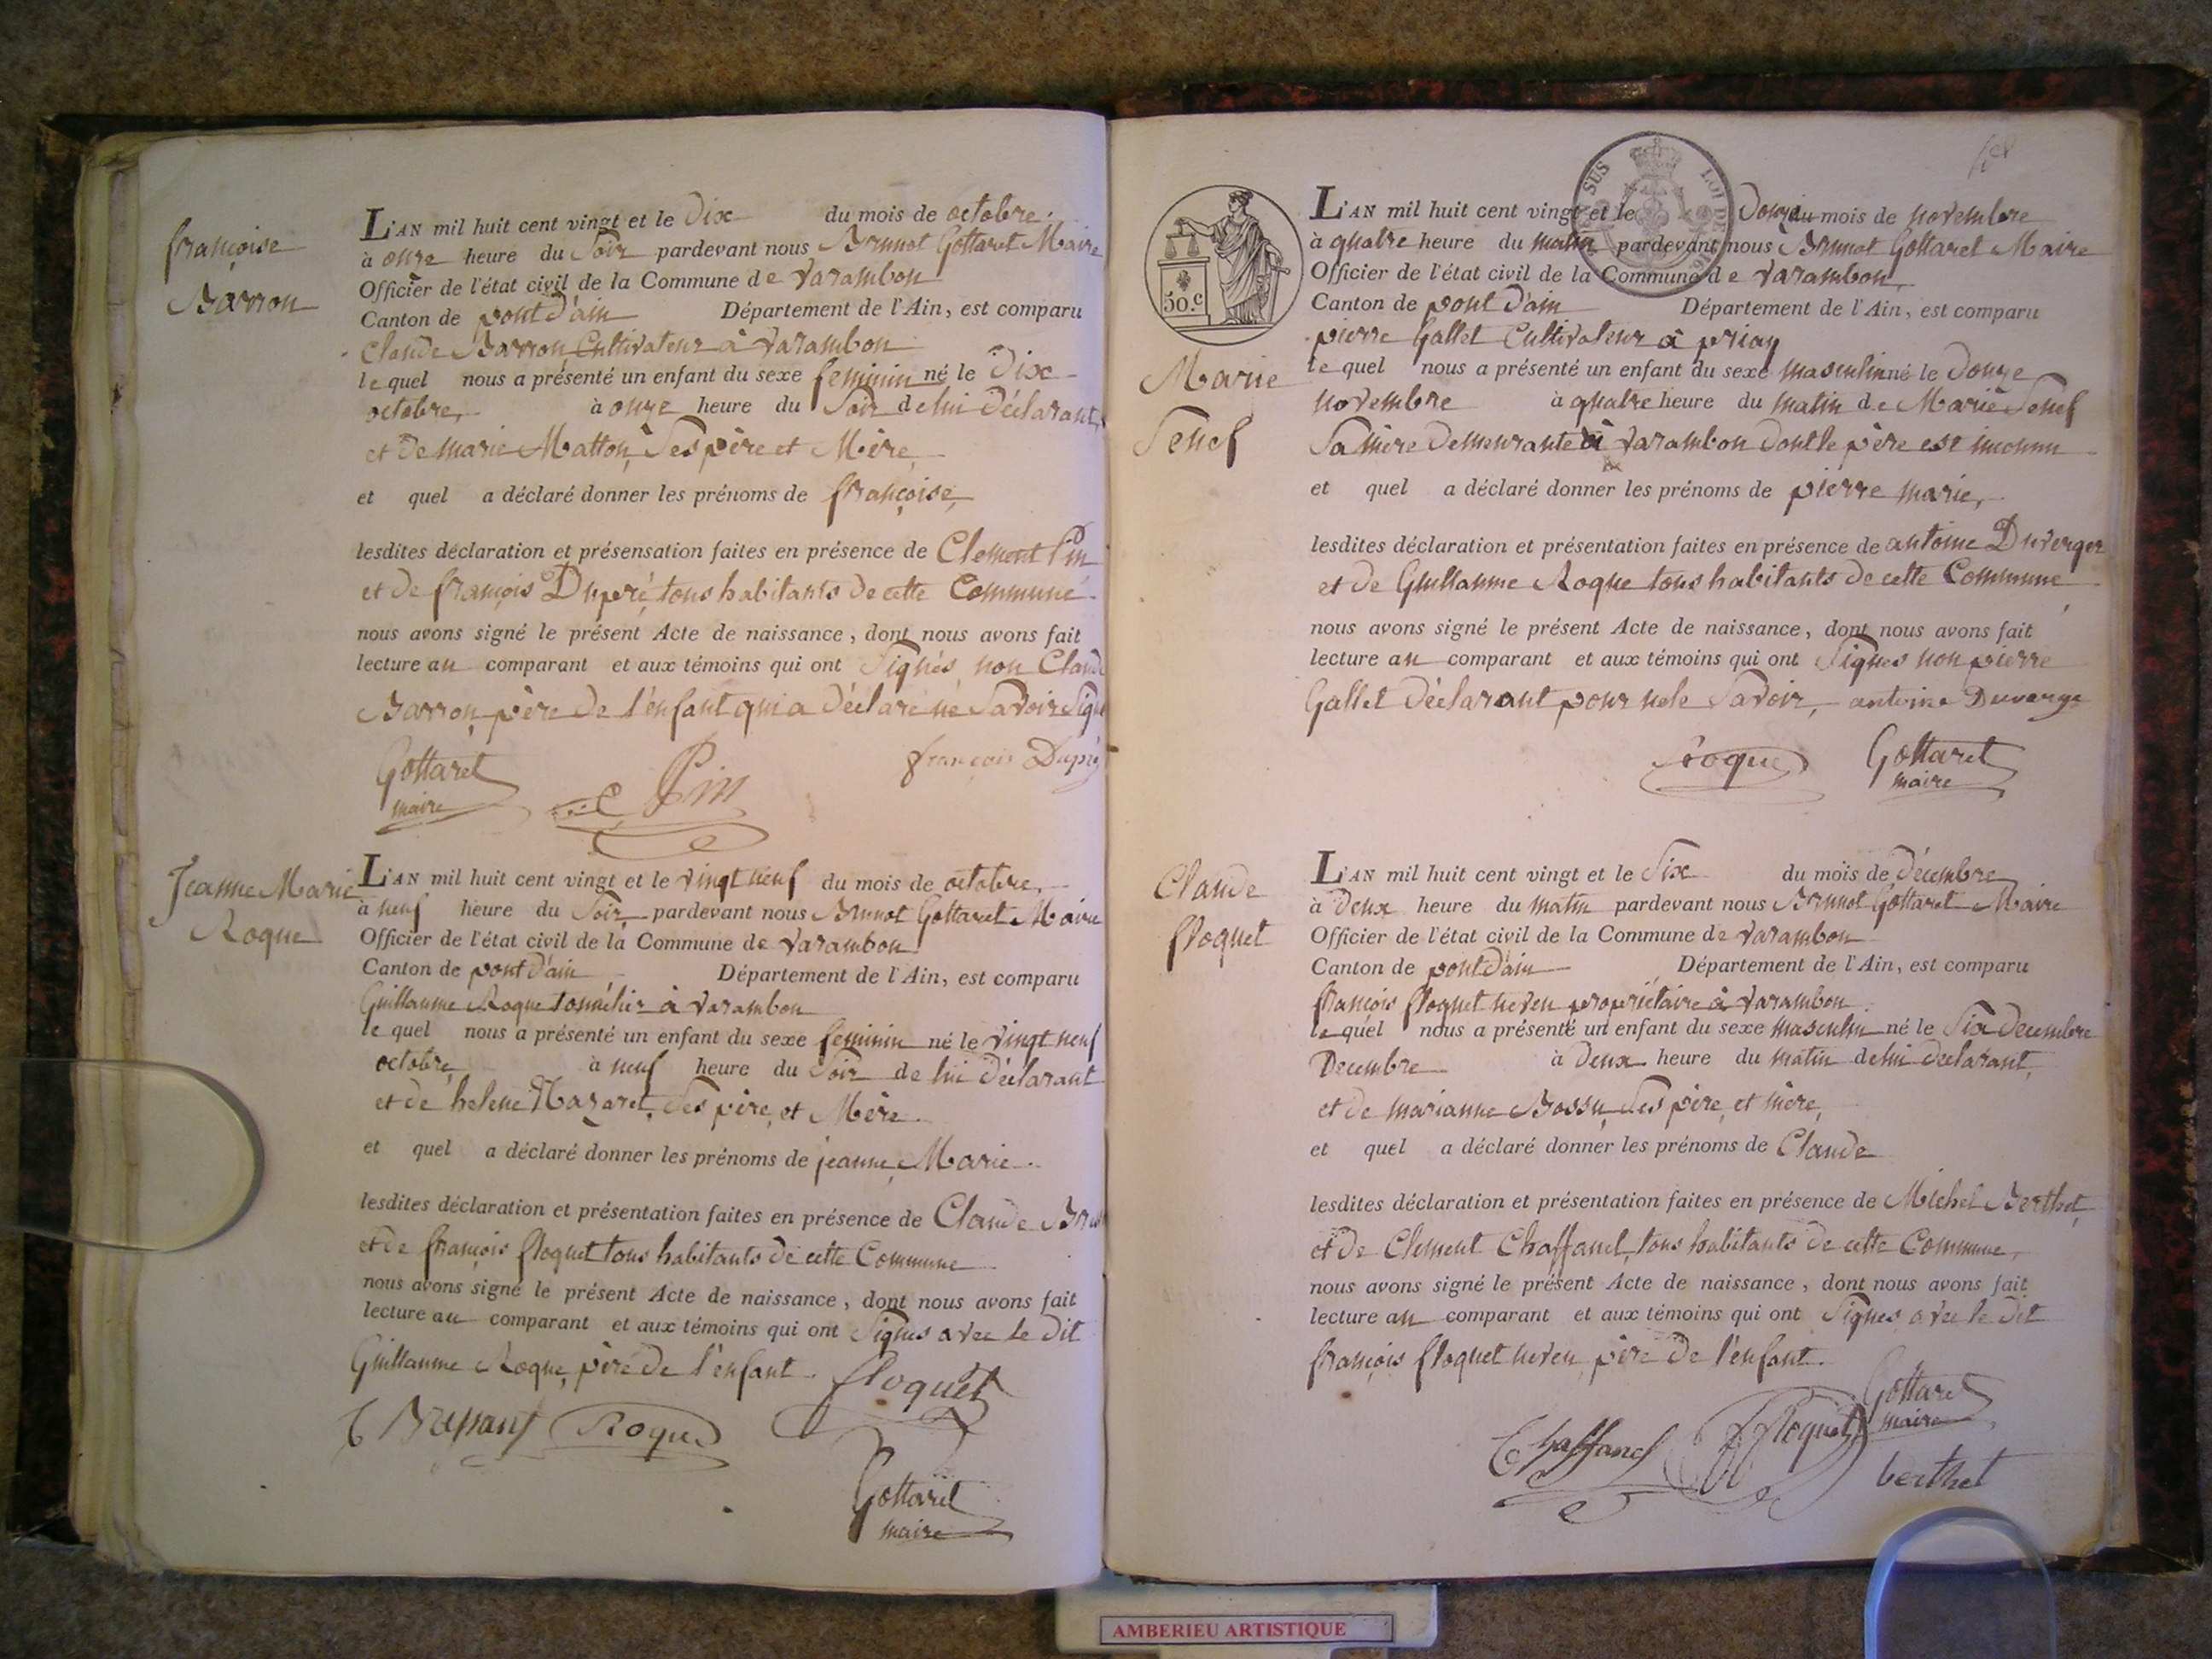 françoise
Barron
L'AN mil huit cent vingt et le Dix du mois de octobre.
à onze heure du Soir pardevant nous Brunot Gottaret Maire
Officier de l'état civil de la Commune de Varambon
Canton de pont d'ain Département de l'Ain, est comparu
Claude Barron Cultivateur à Varambon
le quel nous a présenté un enfant du sexe feminin né le Dix
octobre, à onze heure du Soir de lui Déclarant,
et De marie Matton, Ses père et Mère,
et quel a déclaré donner les prénoms de françoise,
lesdites déclaration et présensation faites en présence de Clement Pin
et De françois Dupré, tous habitants De cette Commune.
nous avons signé le présent Acte de naissance, dont nous avons fait
lecture au comparant et aux témoins qui ont Signés, non Claude
Barron, père De l'enfant qui a Déclaré ne Savoir Signé
Gottaret
maire
C Pin
françois Dupré
Jeanne Marie
Roque
L'AN mil huit cent vingt et le vingt neuf du mois de octobre,
à neuf heure du Soir pardevant nous Brunot Gottaret Maire
Officier de l'état civil de la Commune de Varambon
Canton de pont d'ain Département de l'Ain, est comparu
Guillaume Roque tonnelier à Varambon
le quel nous a présenté un enfant du sexe feminin né le vingt neuf
octobre, à neuf heure du Soir de lui Déclarant
et de helene Nazaret, Ses père, et Mère.
et quel a déclaré donner les prénoms de jeanne, Marie.
lesdites déclaration et présentation faites en présence de Claude
et De françois floquet tous habitants De cette Commune
nous avons signé le présent Acte de naissance, dont nous avons fait
lecture au comparant et aux témoins qui ont Signés avec le Dit
Guillaume Roque, père De l'enfant.
floquet
Roque
Gottaret
maire
SUS LOI DE
50.c
Marie
Senef
L'AN mil huit cent vingt et le Douze du mois de novembre
à quatre heure du matin pardevant nous Brunot Gottaret Maire
Officier de l'état civil de la Commune de Varambon,
Canton de pont D'ain Département de l'Ain, est comparu
pierre Gallet Cultivateur à priay
le quel nous a présenté un enfant du sexe masculin né le Douze
novembre à quatre heure du matin de Marie Senef
Sa mère Demeurante à Varambon Dont le père est inconnu
et quel a déclaré donner les prénoms de pierre marie,
lesdites déclaration et présentation faites en présence de antoine Duverger
et de Guillaume Roque tous habitants de cette Commune
nous avons signé le présent Acte de naissance, dont nous avons fait
lecture au comparant et aux témoins qui ont Signés non pierre
Gallet Déclarant pour ne le Savoir, antoine Duverge
Roque
Gottaret
maire
Claude
floquet
L'AN mil huit cent vingt et le Six du mois de Décembre
à Deux heure du matin pardevant nous Brunot Gottaret Maire
Officier de l'état civil de la Commune de Varambon
Canton de pont D'ain Département de l'Ain, est comparu
françois floquet neveu propriétaire à Varambon.
le quel nous a présenté un enfant du sexe masculin né le Six Decembre
Decembre à Deux heure du matin de lui Declarant,
et De marianne Bossu, Ses père, et mère,
et quel a déclaré donner les prénoms de Claude
lesdites déclaration et présentation faites en présence de Michel Berthet,
et De Clement Chaffanel, tous habitants De cette Commune,
nous avons signé le présent Acte de naissance, dont nous avons fait
lecture au comparant et aux témoins qui ont Signés avec le Dit
françois floquet neveu, père De l'enfant.
Gottaret
maire
floquet
berthet
AMBERIEU ARTISTIQUE